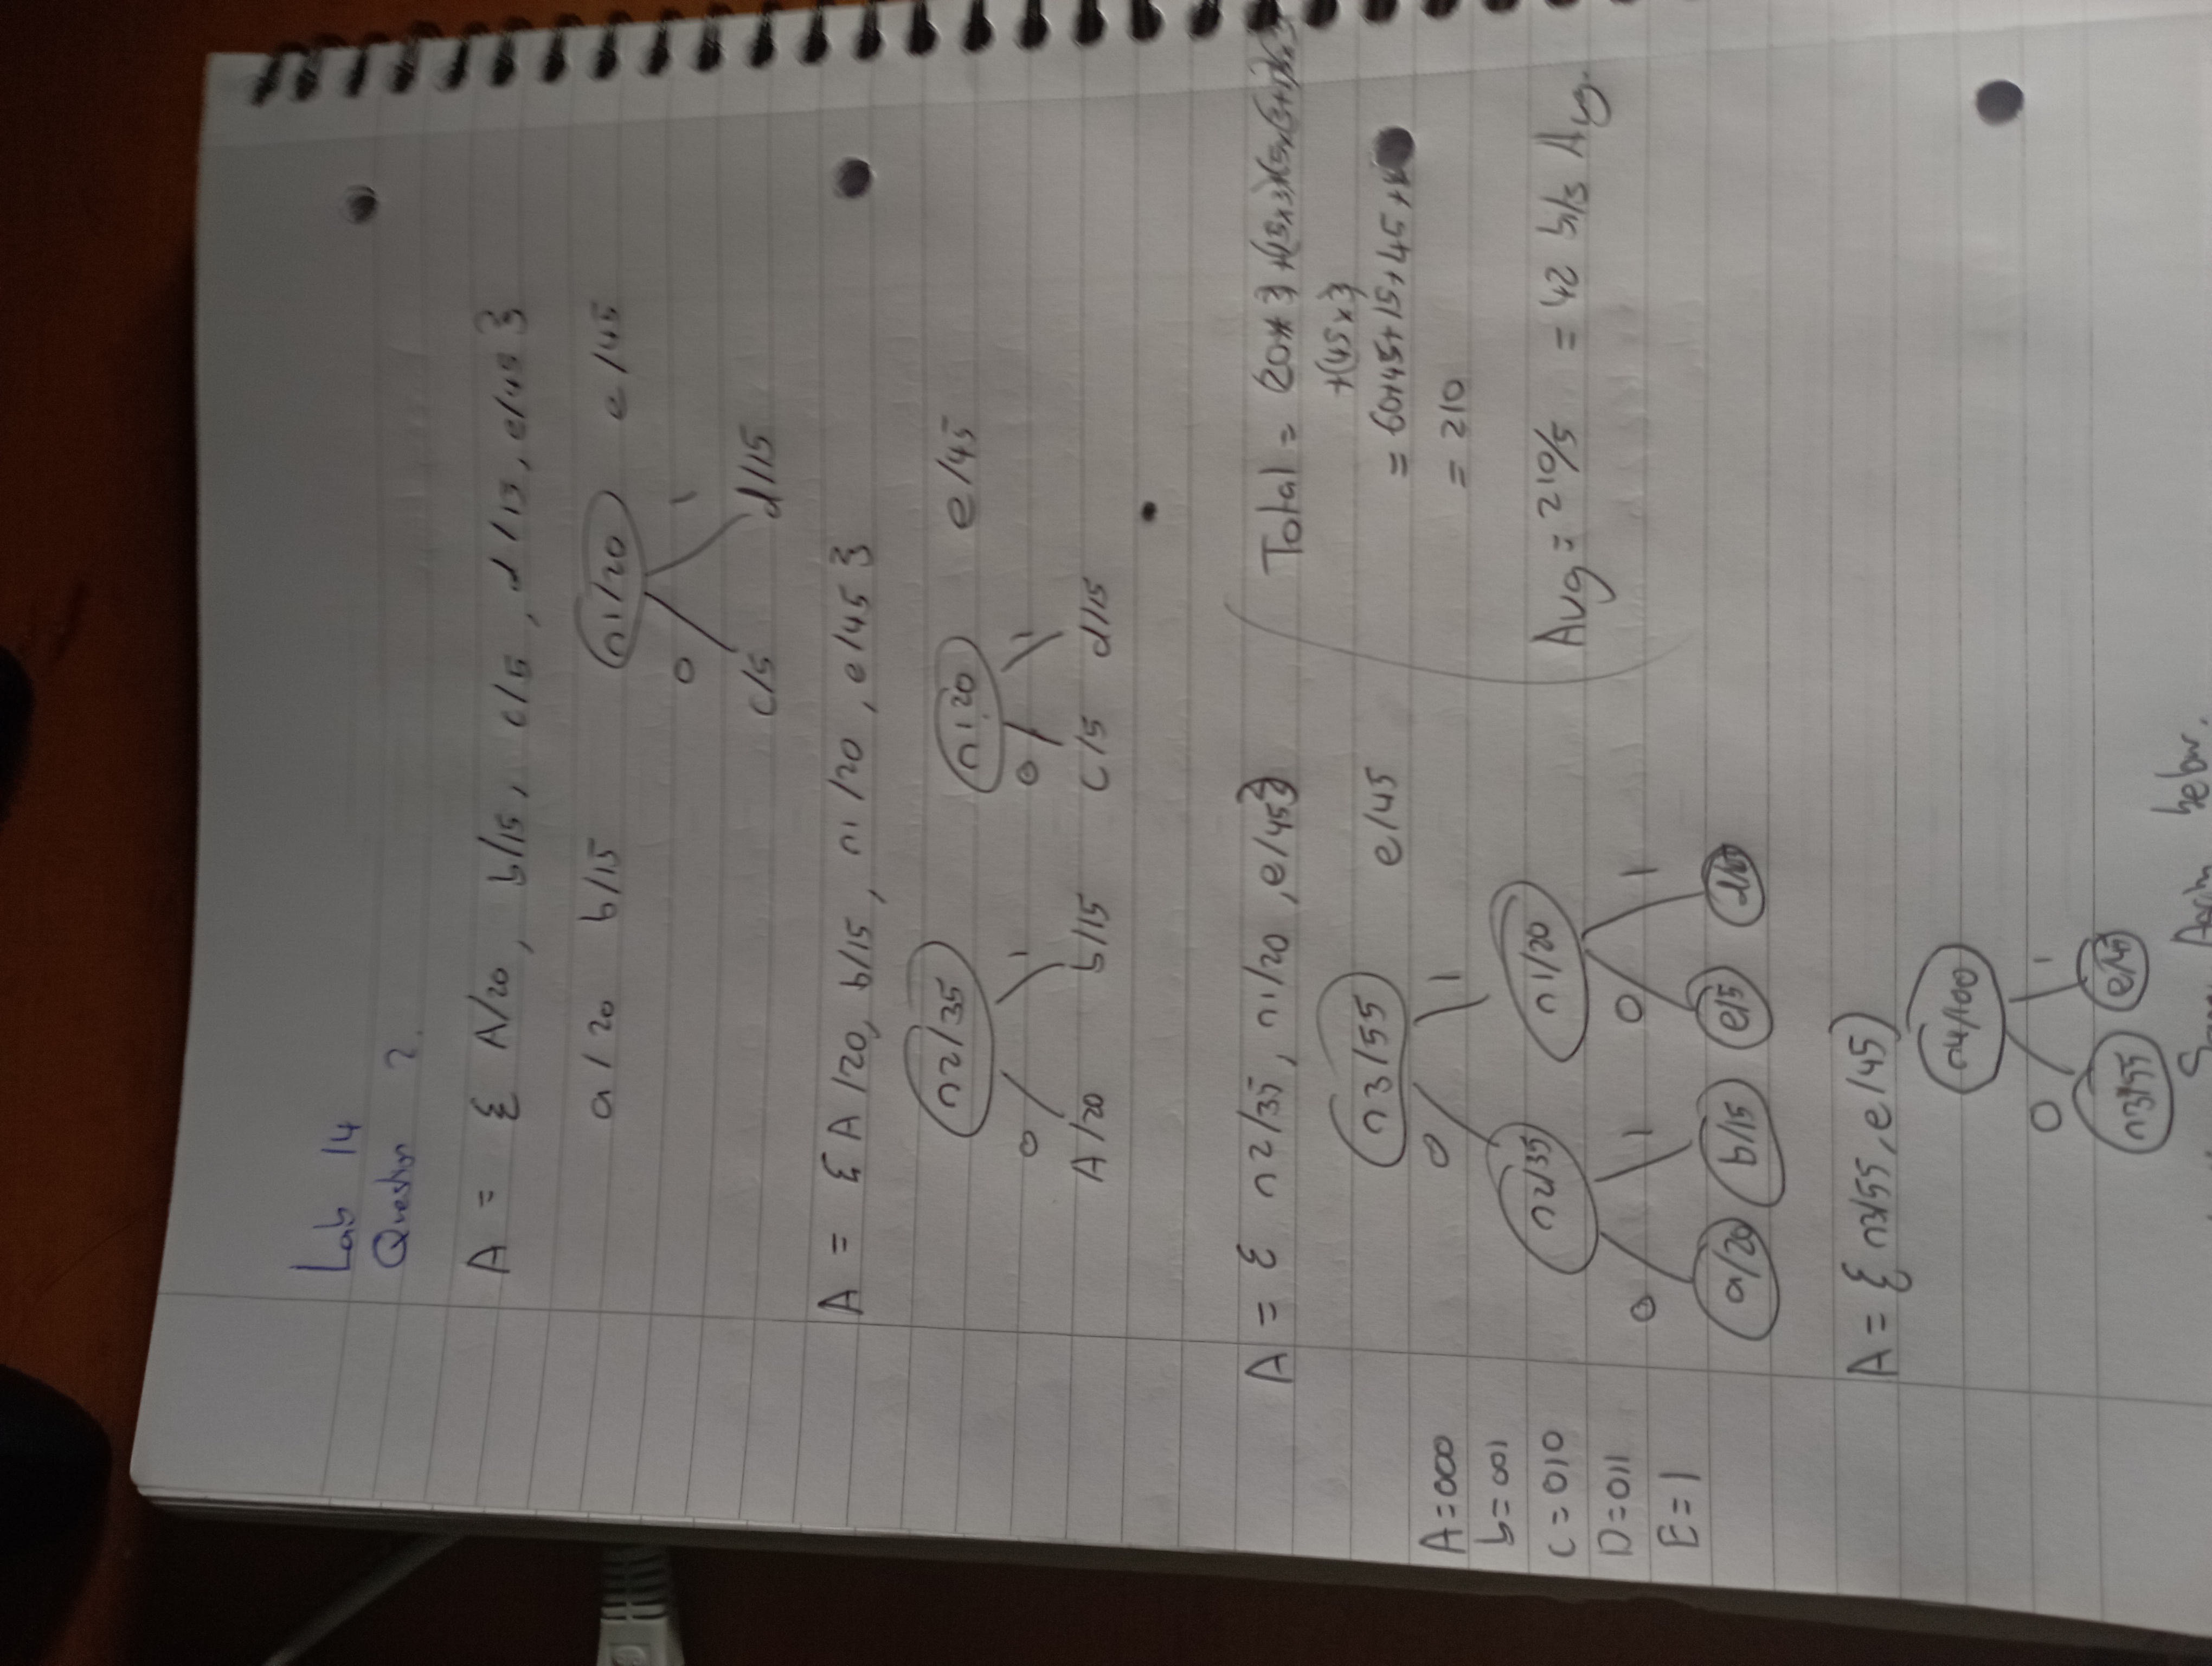 Lab 14
Question 2.
A = { A/20, b/15, c/5, d/15, e/45 }
a/20 b/15 n1/20 e/45
0 1
c/5 d/15
A = { A/20, b/15, n1/20, e/45 }
n2/35 n1 20 e/45
0 1 0 1
A/20 b/15 c/5 d/15
A = { n2/35, n1/20, e/45 }
n3/55 e/45
0 1
n2/35 n1/20
0 1 0 1
a/20 b/15 e/5
A=000
b=001
C=010
D=011
E=1
Total =
+(45x
= 60+45+15+45+
= 210
Avg = 210/5 = 42 b/s Avg.
A = { n3/55, e/45)
n4/100
0 1
n3/55 e/45
below.